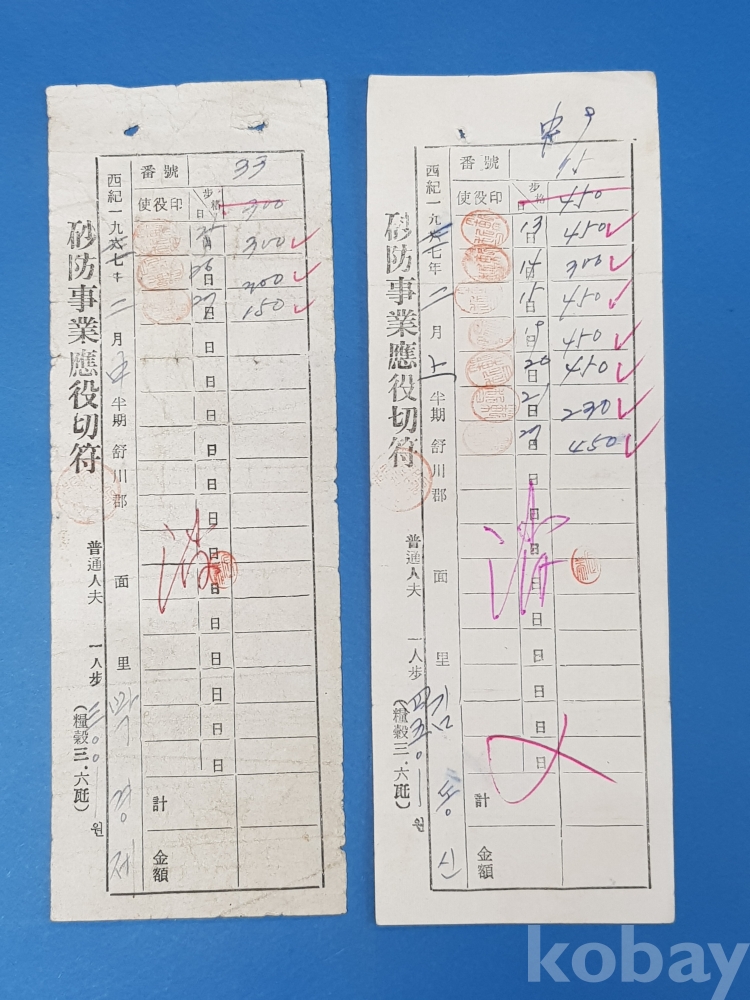 砂防事業應役切符
普通人夫 一人步 三〇〇원
(糧穀三·六瓩)
西紀一九六七年二月中半期舒川郡 面 里
番號 33
使役印 步格 日 300
25日 300
26日 300
27日 150
日
日
日
日
日
日
日
日
日
日
日
日
日
計
金額
砂防事業應役切符
普通人夫 一人步 四五〇원
(糧穀三·六瓩)
西紀一九六七年二月上半期舒川郡 面 里
番號 15
使役印 步格 日 450
13日 450
14日 300
15日 450
19日 450
20日 450
21日 230
27日 450
日
日
日
日
日
日
日
日
日
計
金額
kobay